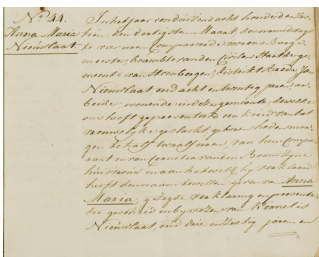 No. 44.
Anna Maria
Nieuwlaat
In het jaar een duizend acht honderd en
den dertigste Maart, des namiddags
vier uren Compareerde voor ons Burge
meester beambte van den Civilen Staat der ge
meente van Steenbergen,
Nieuwlaat oud acht en twintig jaren, ar
beider, wonende in deze gemeente, dewelke
ons heeft gepresenteerd een kind van het
geslacht, geboren heden mor
gen half twaalf uren, van hem Compa
rant en van Cornelia
huisvrouw en aan hetwelk hij verklaard
heeft den naam te geven van Anna
Maria; gezegde verklaring en presenta
tie geschied in bijwezen van Kornelis
Nieuwlaat, oud drie en jaren en